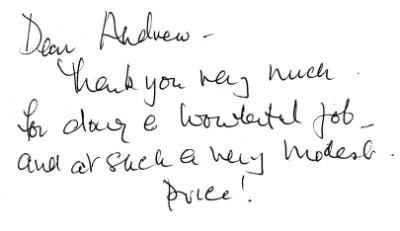 Dear Andrew -
Thank you very much
for doing a wonderful job -
and at such a very modest
price!